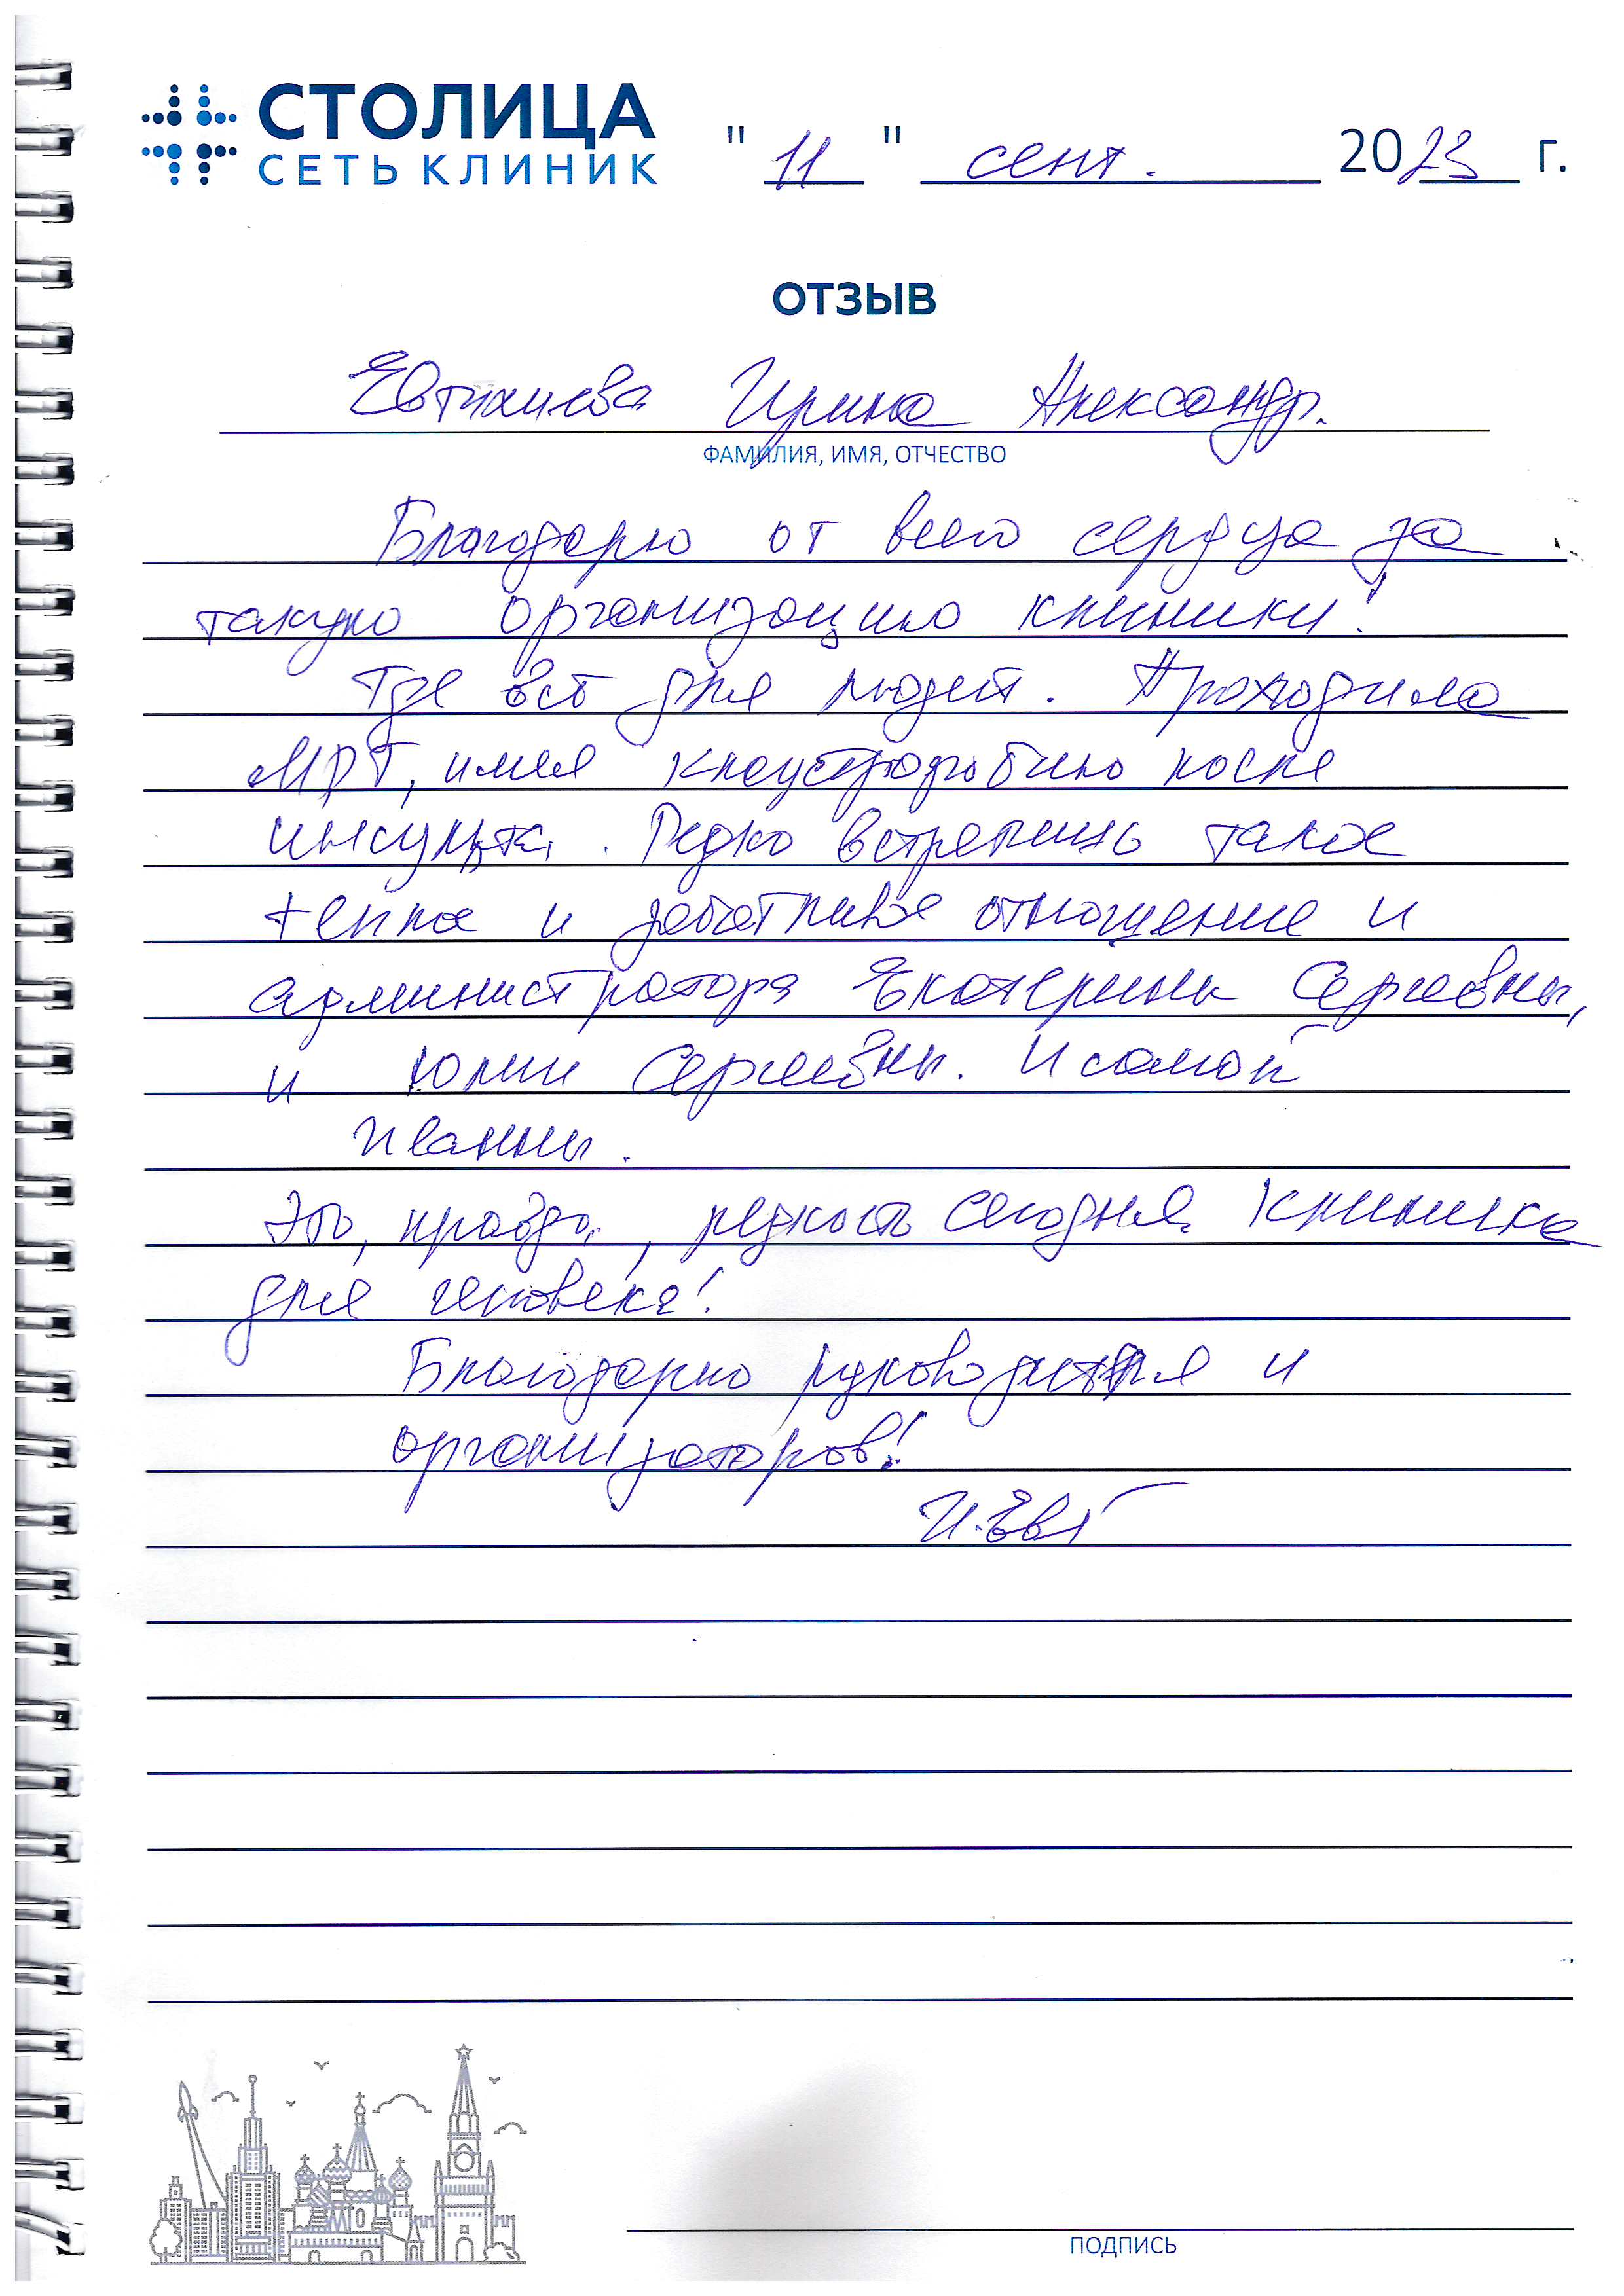 СТОЛИЦА
СЕТЬ КЛИНИК
" 11 " сент. 2023 г.
ОТЗЫВ
Евтихиева Ирина Александр.
ФАМИЛИЯ, ИМЯ, ОТЧЕСТВО
Благодарю от всего сердца за
такую организацию клиники!
Где всё для людей. Проходила
МРТ, имея клаустрофобию после
инсульта. Редко встретишь такое
тепло и заботливое отношение и
администратора Екатерины Сергеевны,
и Юлии Сергеевны. И самой
Иванны.
Это, правда, редкость сегодня. Клиника
для человека!
Благодарю руководителя и
организаторов!
И. Евт
ПОДПИСЬ